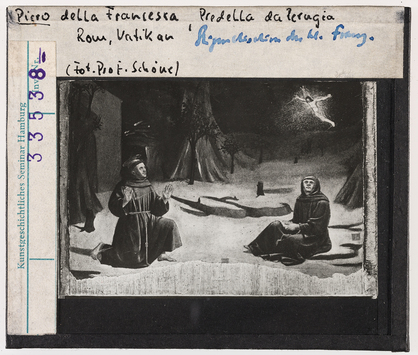 Piero della Francesca Predella da Perugia
Rom, Vatikan Stigmatisation des hl. Franz.
(Fot. Prof. Schöne)
Kunstgeschichtliches Seminar Hamburg
Inv. Nr.
33538-